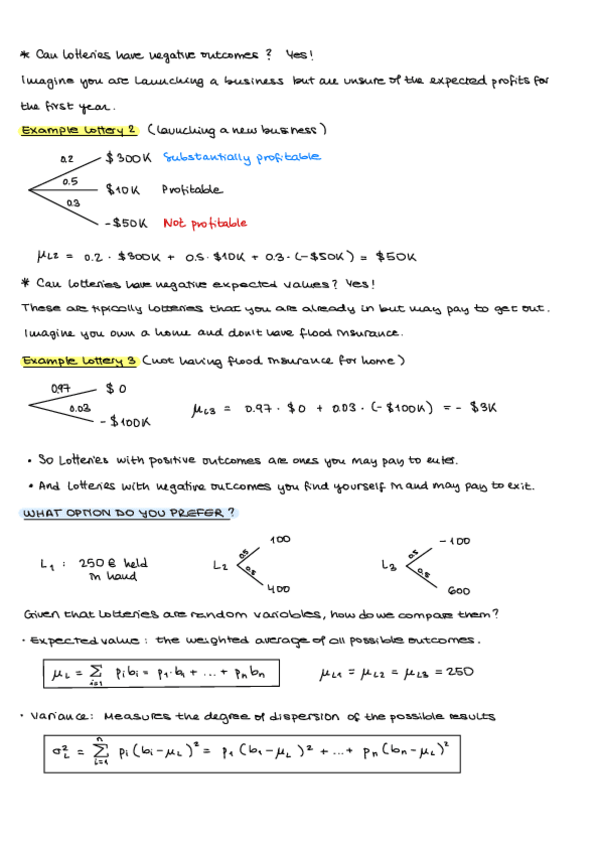 * Can lotteries have negative outcomes? Yes!
Imagine you are launching a business but are unsure of the expected profits for
the first year.
Example lottery 2 (launching a new business)
0.2 $300K Substantially profitable
0.5 $10K Profitable
0.3 -$50K Not profitable
μL2 = 0.2 · $300K + 0.5 · $10K + 0.3 · (-$50K) = $50K
* Can lotteries have negative expected values? Yes!
These are tipically lotteries that you are already in but may pay to get out.
Imagine you own a home and don't have flood insurance.
Example lottery 3 (not having flood insurance for home)
0.97 $0
0.03 -$100K μL3 = 0.97 · $0 + 0.03 · (-$100K) = -$3K
• So lotteries with positive outcomes are ones you may pay to enter.
• And lotteries with negative outcomes you find yourself in and may pay to exit.
WHAT OPTION DO YOU PREFER?
L1 : 250€ held in hand
L2 0.5 100 0.5 400
L3 0.5 -100 0.5 600
Given that lotteries are random variables, how do we compare them?
· Expected value: the weighted average of all possible outcomes.
μL = Σ i=1 pibi = p1·b1 + ... + pnbn μL1 = μL2 = μL3 = 250
· Variance: Measures the degree of dispersion of the possible results
σ²L = Σ n i=1 pi(bi-μL)² = p1(b1-μL)² + ... + pn(bn-μL)²